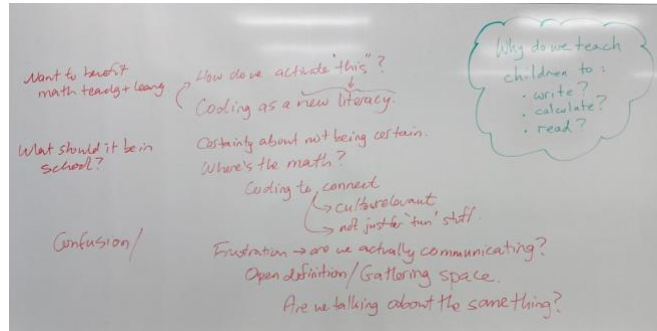 Want to benefit
math teachg + learng
How do we activate "this"?
Coding as a new literacy.
What should it be in
school?
Certainty about not being certain.
Where's the math?
Coding to connect
→ culture relevant
→ not just for 'fun' stuff.
Confusion/
Frustration → are we actually communicating?
Open definition/Gathering space.
Are we talking about the same thing?
Why do we teach
children to:
• write?
• calculate?
• read?